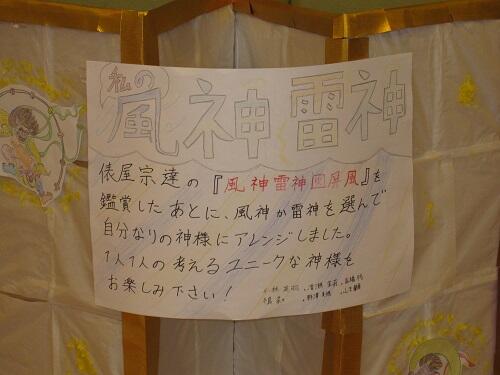 私の
風神雷神
俵屋宗達の『風神雷神図屏風』を
鑑賞したあとに、風神か雷神を選んで
自分なりの神様にアレンジしました。
1人1人の考えるユニークな神様を
お楽しみ下さい!